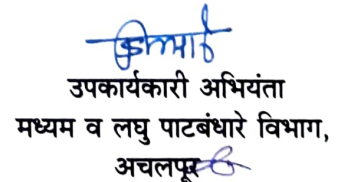 उपकार्यकारी अभियंता
मध्यम व लघु पाटबंधारे विभाग,
अचलपूर